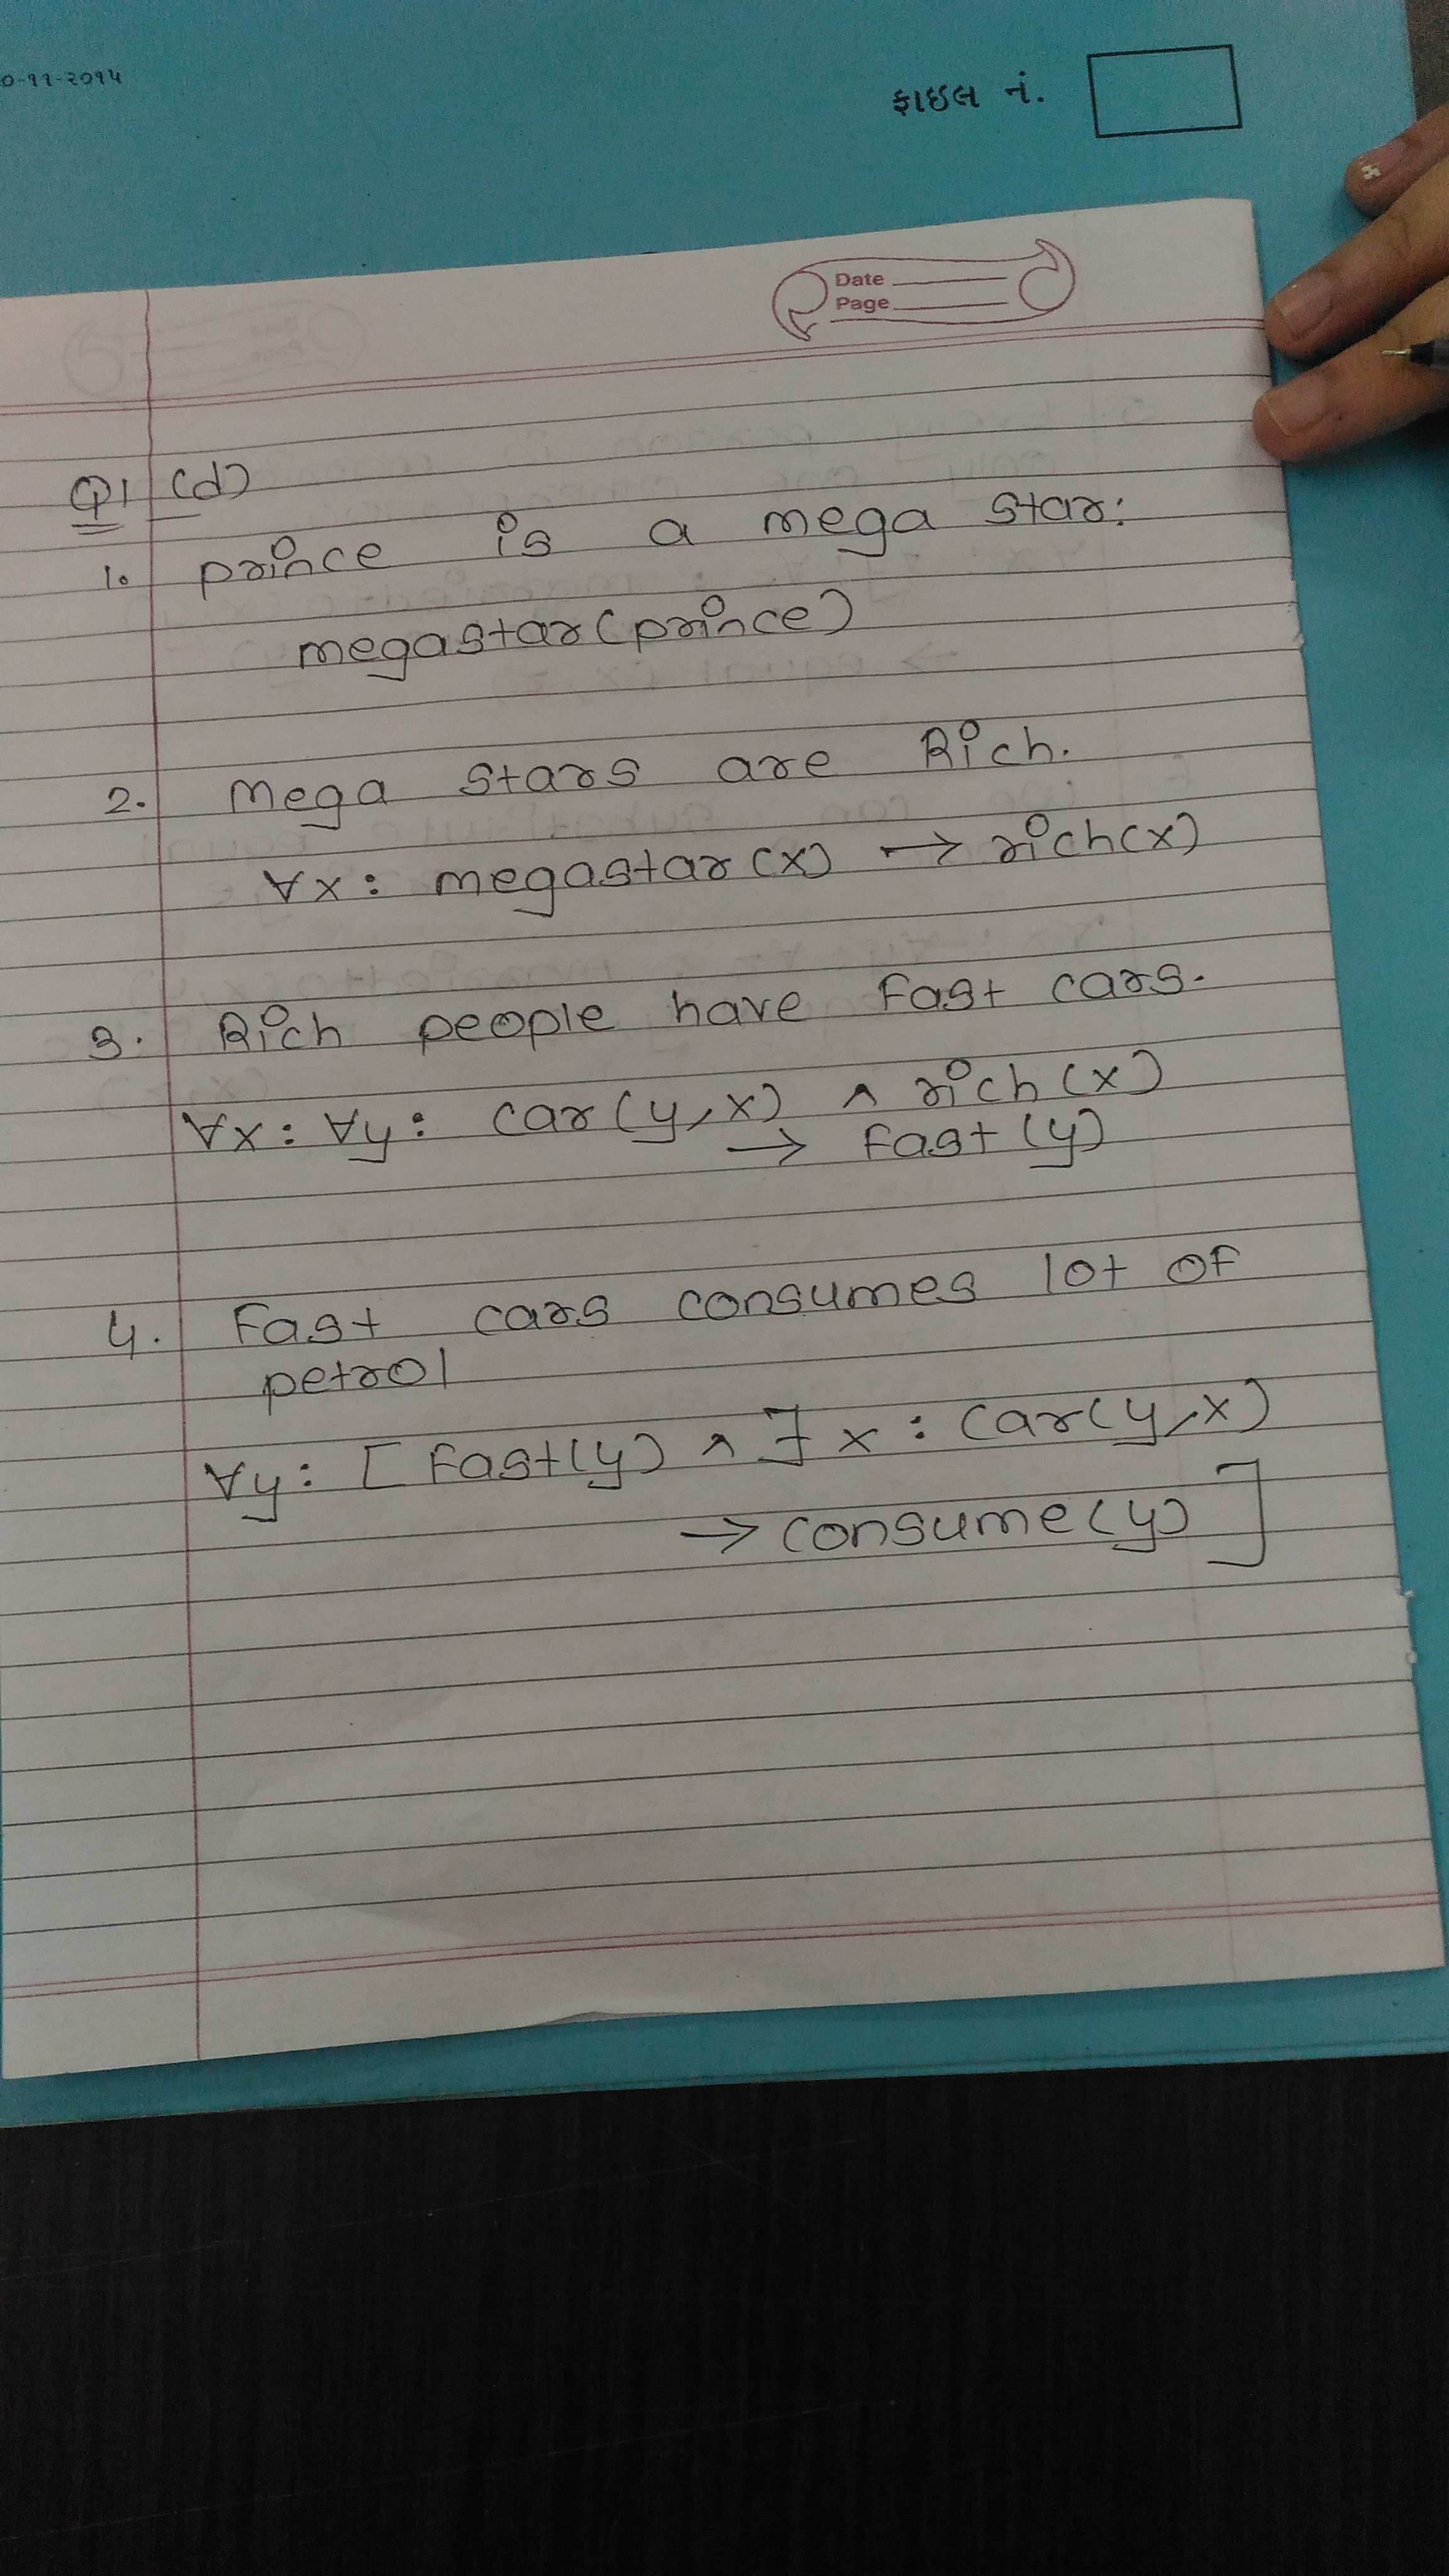 ૦-૧૧-૨૦૧૫
ફાઇલ નં.
Date
Page
Q1 (d)
1. prince is a mega star.
megastar(prince)
2. Mega stars are Rich.
∀x: megastar(x) → rich(x)
3. Rich people have Fast cars.
∀x: ∀y: car(y,x) ∧ rich(x)
→ Fast(y)
4. Fast cars consumes lot of
petrol
∀y: [Fast(y) ∧ ∃x: car(y,x)
→ consume(y)]